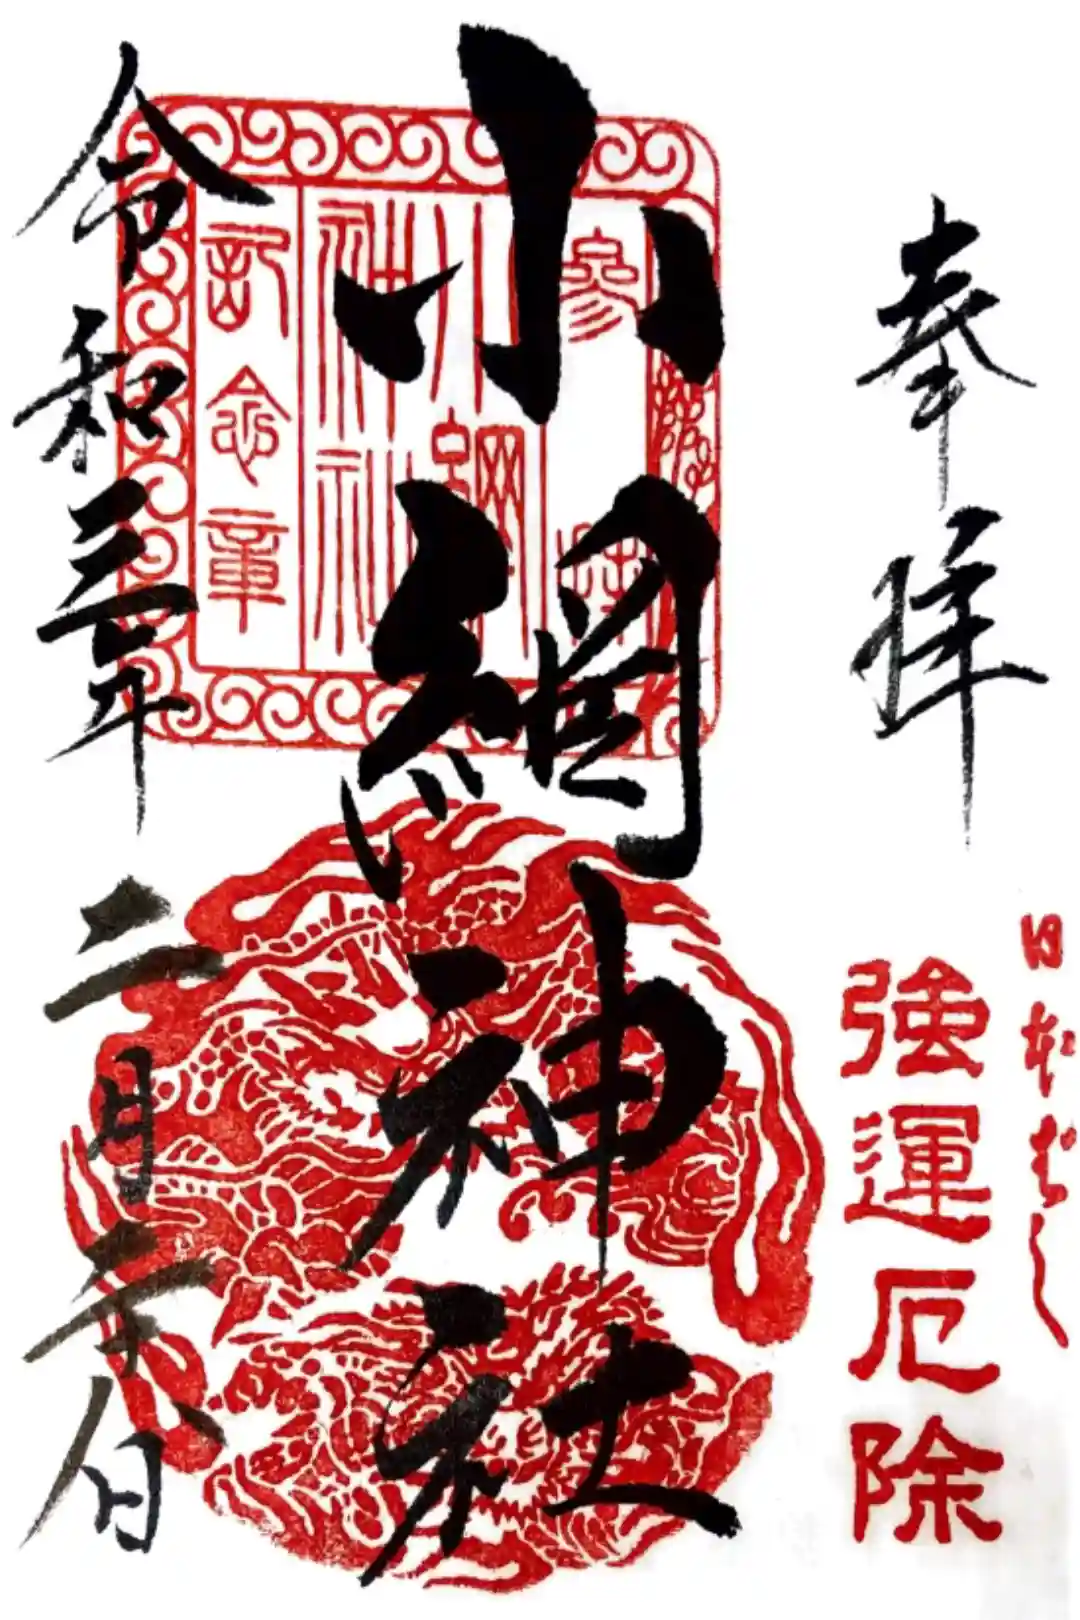 奉拝
日本ばし
強運厄除
小網神社
參拝
小網神社
記念章
令和三年二月二十八日